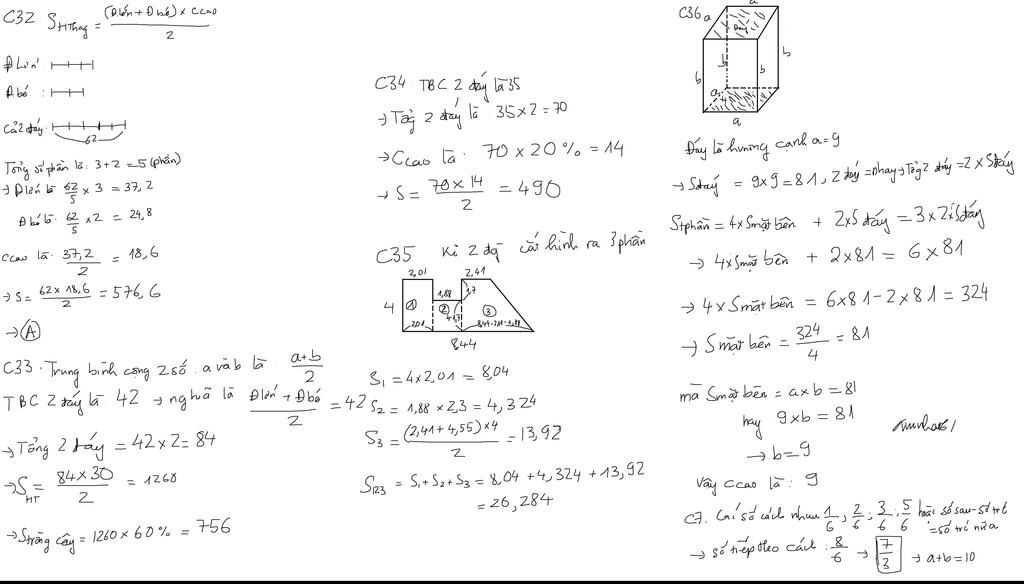 C32 S HThag = (Đlớn + Đbé) × Ccao / 2
Đ Lớn :
Đ bé :
Cả 2 đáy:
62
Tổng số phần là: 3 + 2 = 5 (phần)
→ Đ lớn là 62/5 × 3 = 37,2
Đ bé là: 62/5 × 2 = 24,8
Ccao là: 37,2/2 = 18,6
→ S = 62 × 18,6 / 2 = 576,6
→ A
C33. Trung bình cộng 2 số a và b là a+b/2
TBC 2 đáy là 42 → nghĩa là Đlớn + Đbé / 2 = 42
→ Tổng 2 đáy = 42 × 2 = 84
→ S HT = 84 × 30 / 2 = 1260
→ S trồng cây = 1260 × 60% = 756
C34 TBC 2 đáy là 35
→ Tổg 2 đáy là 35 × 2 = 70
→ Ccao là: 70 × 20% = 14
→ S = 70 × 14 / 2 = 490
C35 Kẻ 2 đg cắt hình ra 3 phần
2,01 2,41
1,88 1,7
4 1 2 4-1,7 3
2,01 8,44-2,01-1,88
844
S1 = 4 × 2,01 = 8,04
S2 = 1,88 × 2,3 = 4,324
S3 = (2,41 + 4,55) × 4 / 2 = 13,92
S123 = S1 + S2 + S3 = 8,04 + 4,324 + 13,92
= 26,284
C36 a a
Đáy
b b b b
a a
Đáy là hvuông cạnh a = 9
→ Sđáy = 9 × 9 = 81, 2 đáy = nhau → Tổg 2 đáy = 2 × Sđáy
Stphần = 4 × Smặt bên + 2 × S đáy = 3 × 2 × Sđáy
→ 4 × Smặt bên + 2 × 81 = 6 × 81
→ 4 × Smặt bên = 6 × 81 - 2 × 81 = 324
→ Smặt bên = 324/4 = 81
mà Smặt bên = a × b = 81
hay 9 × b = 81
→ b = 9
Vậy ccao là: 9
C7. Các số cách nhau 1/6, 2/6, 3/6, 5/6 hoặc số sau - số trc
= số trc nữa
→ số tiếp theo cách: 8/6 → 7/3 → a + b = 10